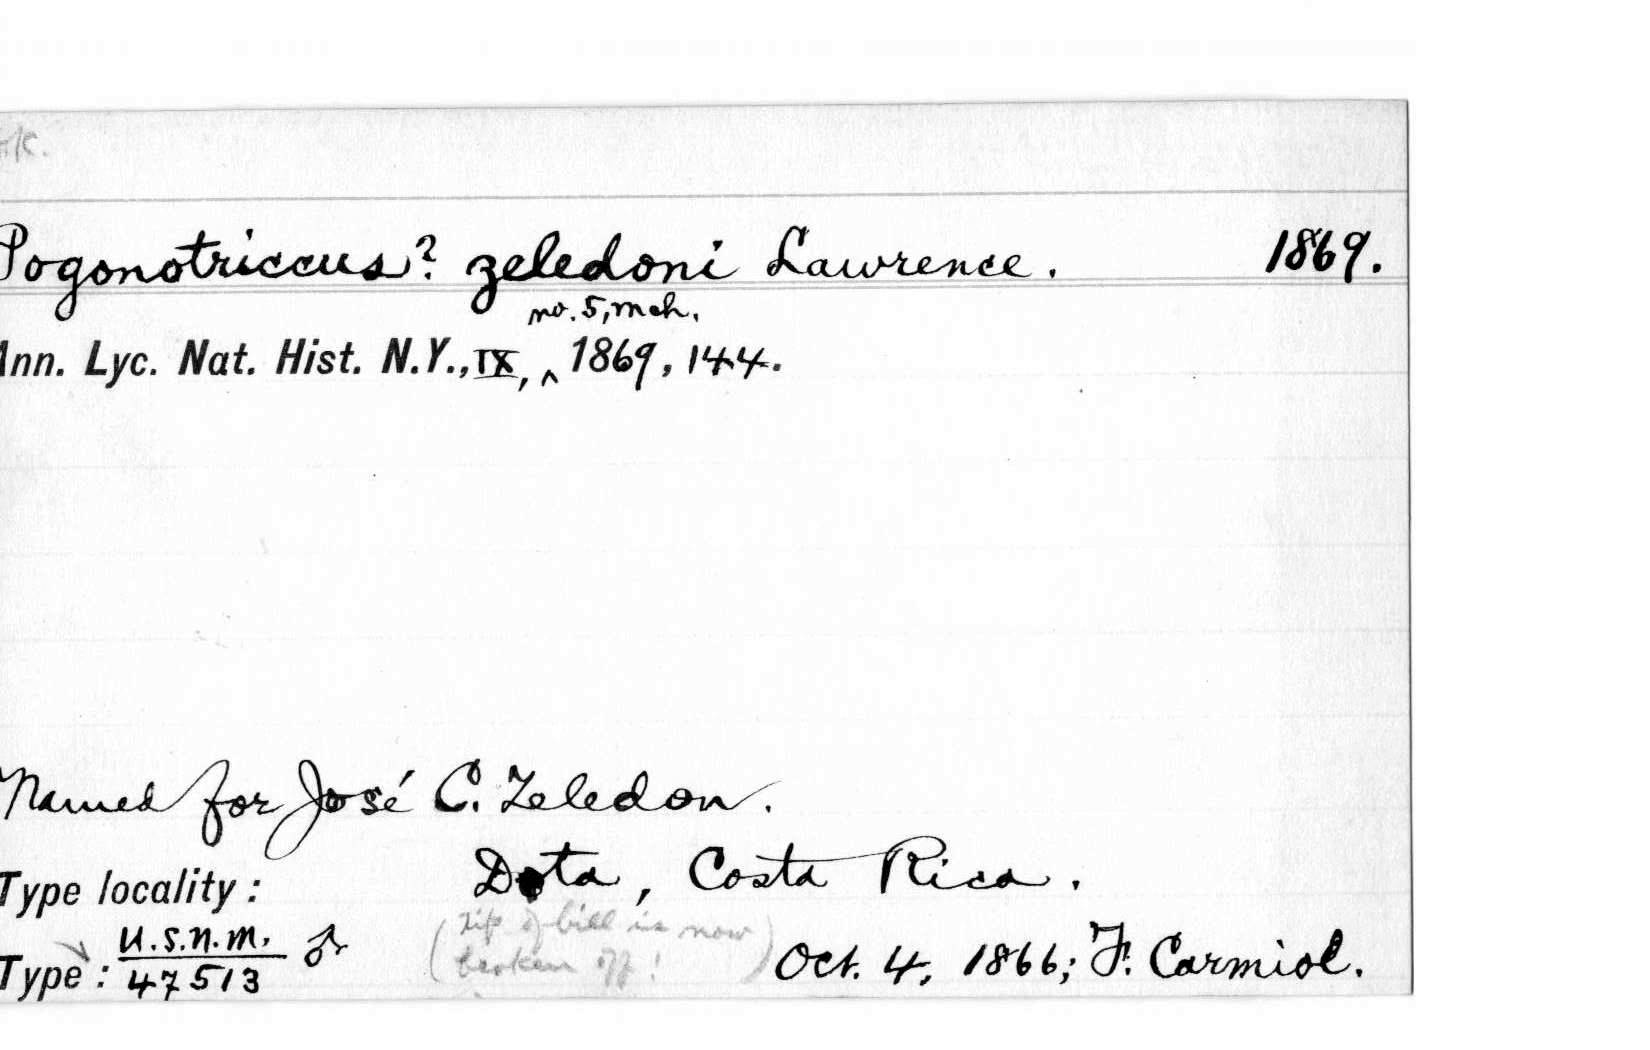 ok.
Pogonotriccus? zeledoni Lawrence. 1869.
no. 5, mch.
Ann. Lyc. Nat. Hist. N.Y., IX, ^ 1869, 144.
Named for José C. Zeledon.
Type locality: Dota, Costa Rica.
(tip of bill is now
broken off!)
Type: U.S.N.M. 47513 ♂ Oct. 4, 1866; F. Carmiol.